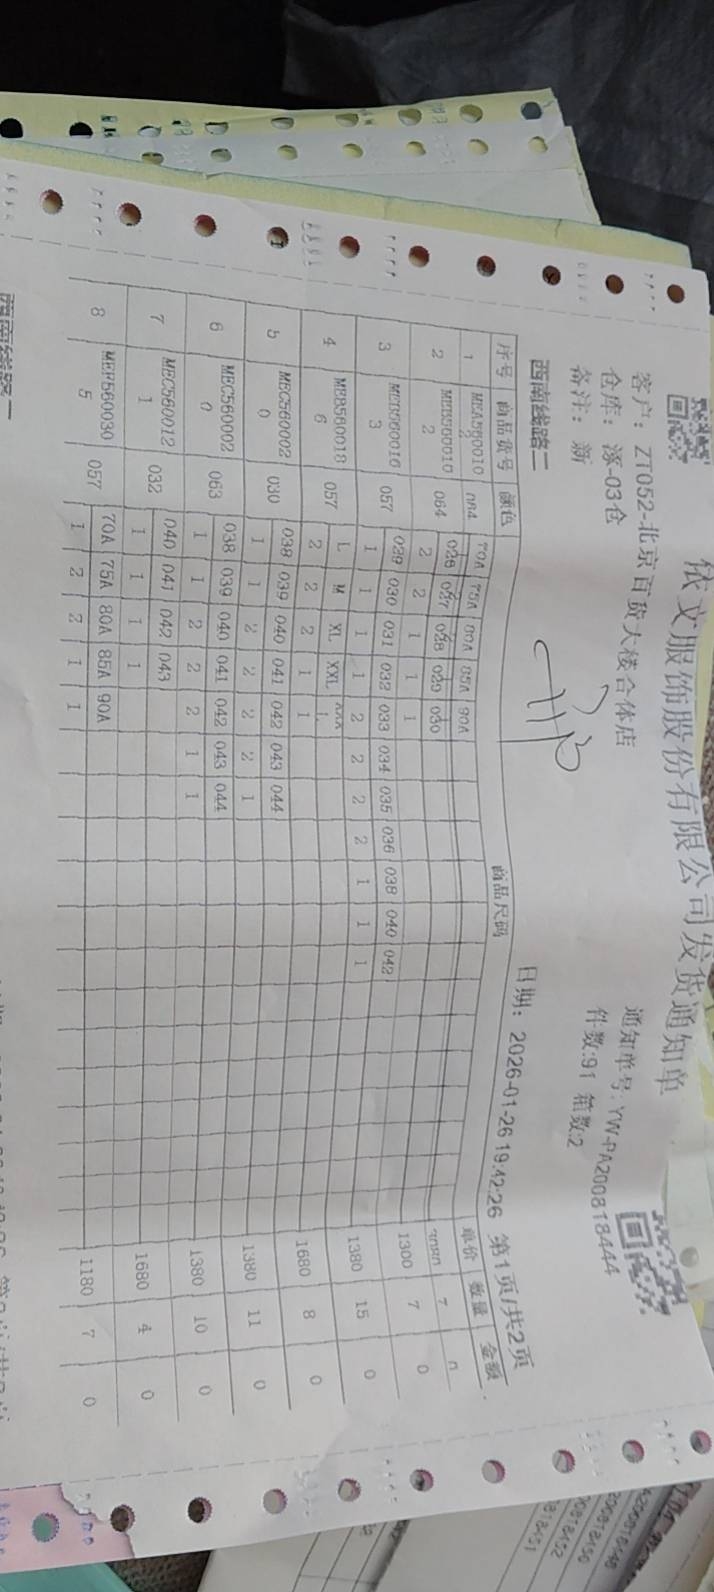 依文服饰股份有限公司发货通知单
客户：ZT052-北京百货大楼合体店 通知单号:YW-PA200818444
仓库：涿-03仓 件数:91 箱数:2
备注：新
西南线路二 日期：2026-01-26 19:42:26 第1页/共2页
序号 商品货号 颜色 商品尺码 单价 数量 金额
1 70A 75A 80A 85A 90A 7
2 064 026 027 028 029 030 1300 7 0
2 2 2 1 1 1
3 057 029 030 031 032 033 034 035 036 038 040 042 1380 15 0
3 1 1 1 1 2 2 2 2 1 1 1
4 MEB560018 057 L M XL XXL 1680 8 0
6 2 2 2 1 1
5 MEC560002 030 038 039 040 041 042 043 044 1380 11 0
0 1 1 2 2 2 2 1
6 MEC560002 063 038 039 040 041 042 043 044 1380 10 0
0 1 1 2 2 2 1 1
7 MEC560012 032 040 041 042 043 1680 4 0
1 1 1 1 1
8 057 70A 75A 80A 85A 90A 1180 7 0
5 1 2 2 1 1
西南线路二